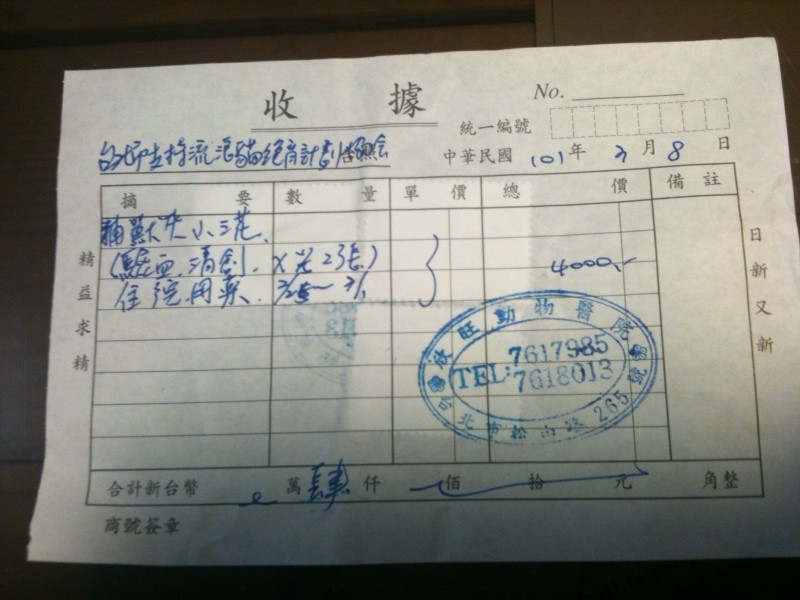 收據
No.
統一編號
台灣認養地圖流浪貓絕育計劃協會
中華民國 101 年 3 月 8 日
摘要 數量 單價 總價 備註
捕獸夾小三花、
(驗血、清創、X光2張)
住院用藥、 2/25~3/1
4000.-
精益求精
日新又新
欣旺動物醫院
TEL: 7617985
7618013
台北市松山路265號
合計新台幣 萬 肆 仟 佰 拾 元 角整
商號簽章